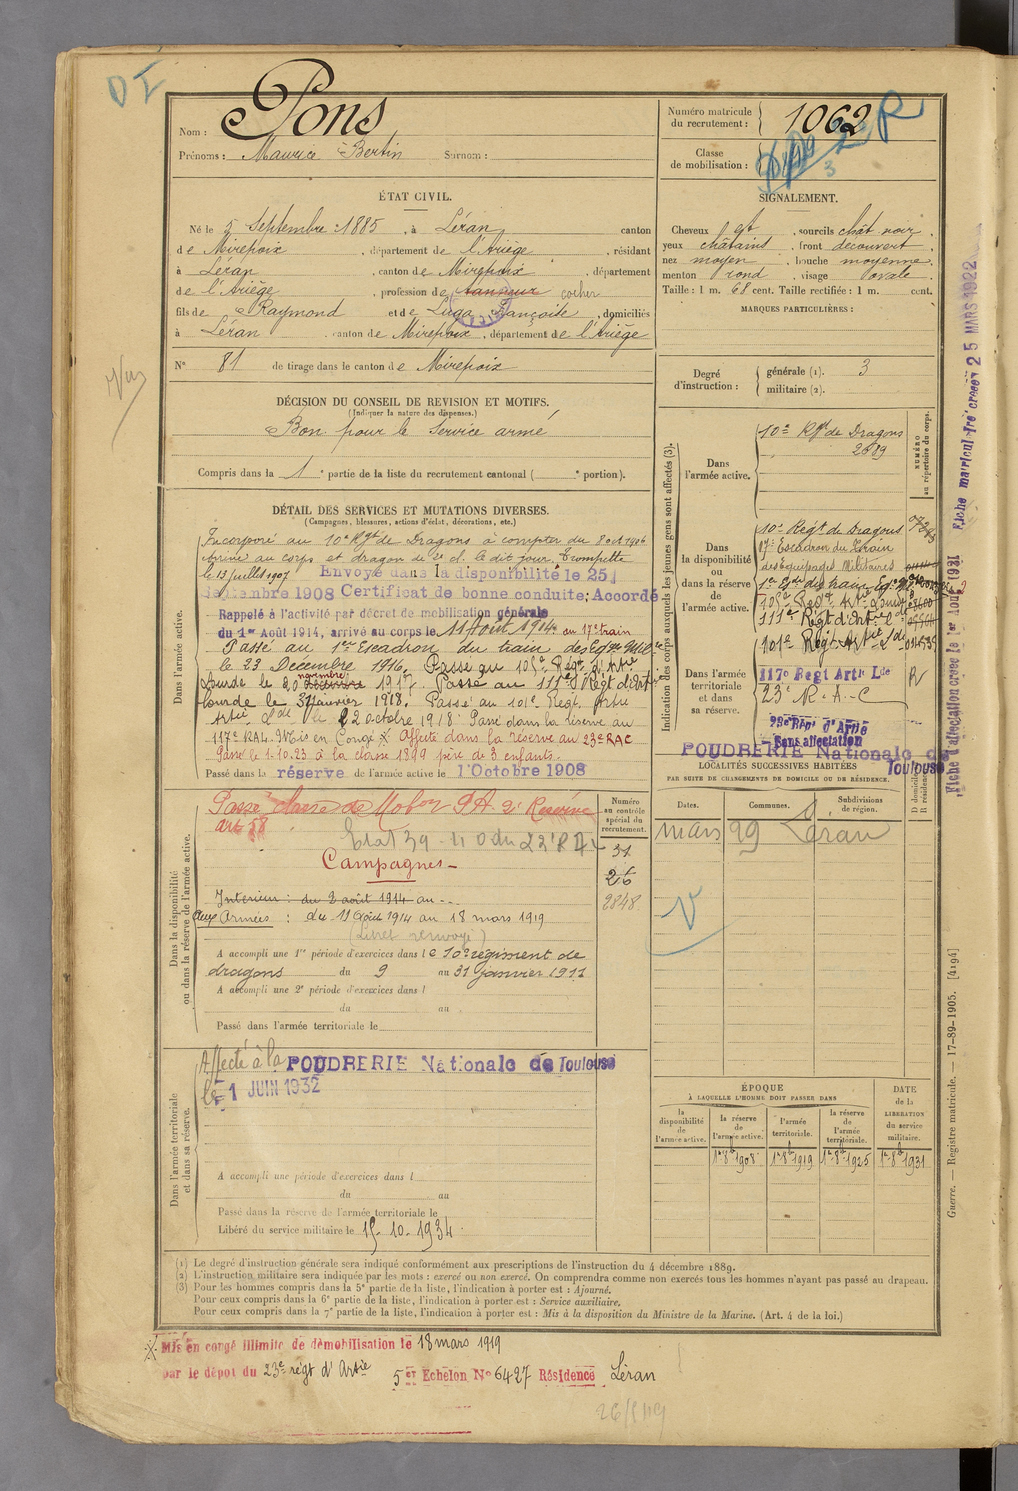 D I
Nom : Pons
Prénoms : Maurice Bertin Surnom :
Numéro matricule du recrutement : 1062 R
Classe de mobilisation :
3
ÉTAT CIVIL.
Né le 5 Septembre 1885, à Léran canton
de Mirepoix, département de l'Ariège, résidant
à Léran, canton de Mirepoix, département
de l'Ariège, profession de tanneur cocher
fils de Raymond et de Luga Françoise, domiciliés
à Léran, canton de Mirepoix, département de l'Ariège
N° 81 de tirage dans le canton de Mirepoix
SIGNALEMENT.
Cheveux et, sourcils chât noir
yeux châtains, front découvert
nez moyen, bouche moyenne
menton rond, visage ovale
Taille : 1 m. 68 cent. Taille rectifiée : 1 m. cent.
MARQUES PARTICULIÈRES :
Degré d'instruction : générale (1). 3
militaire (2).
DÉCISION DU CONSEIL DE REVISION ET MOTIFS.
(Indiquer la nature des dispenses.)
Bon pour le Service armé
Compris dans la 1e partie de la liste du recrutement cantonal ( e portion).
DÉTAIL DES SERVICES ET MUTATIONS DIVERSES.
(Campagnes, blessures, actions d'éclat, décorations, etc.)
Dans l'armée active.
Incorporé au 10e Rgt de Dragons à compter du 8 oct 1906
Arrivé au corps et dragon de 2e cl. le dit jour. Trompette
le 13 juillet 1907 Envoyé dans la disponibilité le 25
septembre 1908 Certificat de bonne conduite; Accordé
Rappelé à l'activité par décret de mobilisation générale
du 1er Août 1914, arrivé au corps le 11 Août 1914 au 17e train
Passé au 1er Escadron du train des Eq. Mil.
le 23 Décembre 1916. Passé au 105e Regt d'Artie
Lourde le 20 décembre novembre 1917. Passé au 111e Régt d'Art
lourde le 31 Janvier 1918. Passé au 101e Regt. Artie
Artie Lde le 22 octobre 1918. Passé dans la réserve au
117e RAL. Mis en Congé X Affecté dans la réserve au 23e RAC
Passé le 1.10.23 à la classe 1899 père de 3 enfants.
Passé dans la réserve de l'armée active le 1'Octobre 1908
Indication des corps auxquels les jeunes gens sont affectés (3).
NUMÉRO au répertoire du corps.
Dans l'armée active.
10e Rgt de Dragons
2689
Dans la disponibilité ou dans la réserve de l'armée active.
10e Régt de Dragons
17e Escadron du Train
des Equipages Militaires
105e Regt Artie Lourde
111e Régt d'Art
101e Regt Artie Lde
Dans l'armée territoriale et dans sa réserve.
117e Regt Artie Lde R
23e R-A-C
23e Régt d'Artie
Sans affectation
POUDRERIE Nationale de Toulouse
LOCALITÉS SUCCESSIVES HABITÉES
PAR SUITE DE CHANGEMENTS DE DOMICILE OU DE RÉSIDENCE.
Dates. Communes. Subdivisions de région. D domicile R résidence.
mars 29 Léran
Dans la disponibilité ou dans la réserve de l'armée active.
Passé classe de Mob 2e Réserve
art 58
Numéro au contrôle spécial du recrutement.
26
2848
Campagnes
Intérieur : du 2 août 1914 au - - -
aux Armées : du 11 Août 1914 au 18 mars 1919
(Livret renvoyé)
A accompli une 1re période d'exercices dans le 10e régiment de
dragons du 9 au 31 Janvier 1911
A accompli une 2e période d'exercices dans l
du au
Passé dans l'armée territoriale le
Dans l'armée territoriale et dans sa réserve.
Affecté à la POUDRERIE Nationale de Toulouse
le 1 JUIN 1932
A accompli une période d'exercices dans l
du au
Passé dans la réserve de l'armée territoriale le
Libéré du service militaire le 15-10-1934
ÉPOQUE
À LAQUELLE L'HOMME DOIT PASSER DANS
la disponibilité de l'armée active.
la réserve de l'armée active.
l'armée territoriale.
la réserve de l'armée territoriale.
DATE de la LIBÉRATION du service militaire.
1er 8b 1908 1er 8b 1919 1er 8b 1925 1er 8b 1931
(1) Le degré d'instruction générale sera indiqué conformément aux prescriptions de l'instruction du 4 décembre 1889.
(2) L'instruction militaire sera indiquée par les mots : exercé ou non exercé. On comprendra comme non exercés tous les hommes n'ayant pas passé au drapeau.
(3) Pour les hommes compris dans la 5e partie de la liste, l'indication à porter est : Ajourné.
Pour ceux compris dans la 6e partie de la liste, l'indication à porter est : Service auxiliaire.
Pour ceux compris dans la 7e partie de la liste, l'indication à porter est : Mis à la disposition du Ministre de la Marine. (Art. 4 de la loi.)
X Mis en congé illimité de démobilisation le 18 mars 1919
par le dépôt du 23e régt d'Artie 5e Echelon N° 6427 Résidence Léran
Fiche matriculaire créée 25 MARS 1922
Fiche affectation créée le 1er Août 1931
Guerre. — Registre matricule. — 17-89-1905. [4194]